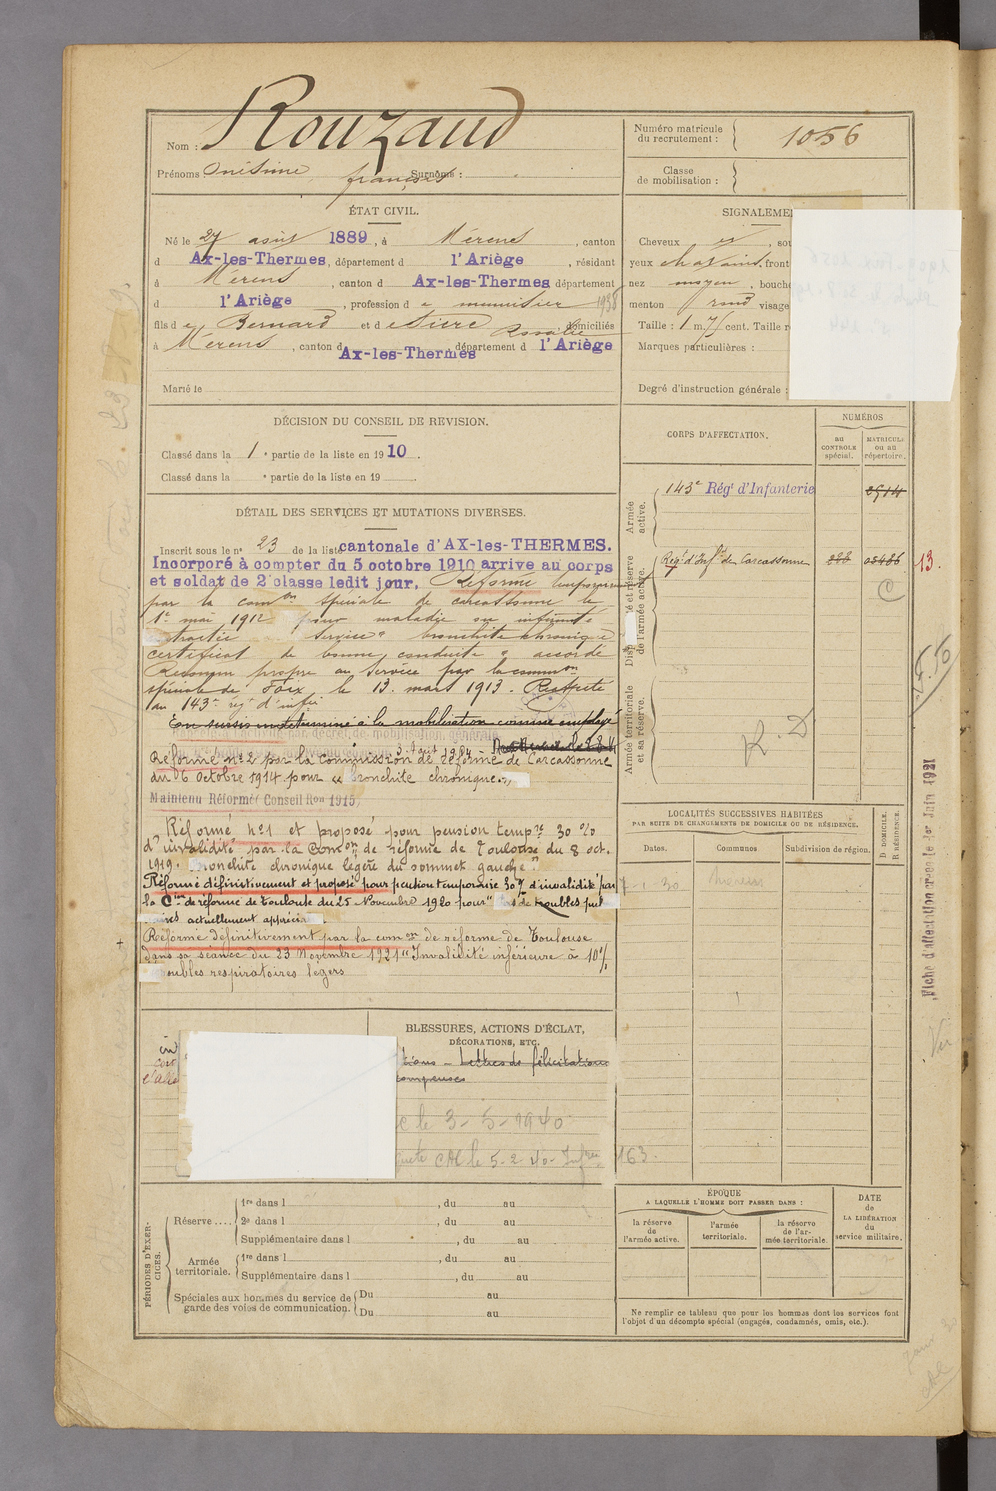 Nom : Rouzaud
Prénoms Onésime françois Surnoms :
Numéro matricule du recrutement : 1056
Classe de mobilisation :
ÉTAT CIVIL.
Né le 27 août 1889, à Mérens, canton
d Ax-les-Thermes, département d l'Ariège, résidant
à Mérens, canton d Ax-les-Thermes département
d l'Ariège, profession d e menuisier 1938
fils d e Bernard et d e Sicre Rosalie domiciliés
à Mérens, canton d Ax-les-Thermes, département d l'Ariège
Marié le
SIGNALEME
Cheveux
yeux chatains, front
nez moyen, bouche
menton rond visage
Taille : 1 m. 71 cent. Taille r
Marques particulières :
Degré d'instruction générale :
DÉCISION DU CONSEIL DE REVISION.
Classé dans la 1e partie de la liste en 1910.
Classé dans la e partie de la liste en 19
DÉTAIL DES SERVICES ET MUTATIONS DIVERSES.
Inscrit sous le n° 23 de la liste cantonale d'AX-les-THERMES.
Incorporé à compter du 5 octobre 1910 arrive au corps
et soldat de 2e classe ledit jour. Réformé temporairement
par la comon spéciale de carcassonne le
1er mai 1912 pour maladie ou infirmité
service " bronchite chronique
certificat de bonne conduite " accordé
Reconnu propre au service par la common
spéciale de Foix, le 13. mars 1913. Réaffecté
au 143e rég d'infie
En sursis indéterminé à la mobilisation comme employé
Rappelé à l'activité par décret de mobilisation générale
3 Août 1914
Réformé n° 2 par la commission de réforme de Carcassonne
du 6 octobre 1914 pour « bronchite chronique »
Maintenu Réformé (Conseil Ron 1915)
Réformé n° 1 et proposé pour pension tempre 30 %
d'invalidité par la comon de réforme de Toulouse du 8 oct.
1919. Bronchite chronique légère du sommet gauche"
Réformé définitivement et proposé pour pension temporaire 30% d'invalidité par
la Con de réforme de Toulouse du 25 Novembre 1920 pour " pas de troubles pul
naires actuellement appréciables
Réformé définitivement par la comon de réforme de Toulouse
dans sa séance du 23 Novembre 1921 "Invalidité inférieure à 10%
troubles respiratoires légers
CORPS D'AFFECTATION.
NUMÉROS
au CONTRÔLE spécial.
MATRICULE ou au répertoire.
Armée active.
143e Régt d'Infanterie 2514
Disp té et réserve de l'armée active.
Régt d'Inftie de Carcassonne 222 05486 13.
C
Armée territoriale et sa réserve.
R. D
LOCALITÉS SUCCESSIVES HABITÉES
PAR SUITE DE CHANGEMENTS DE DOMICILE OU DE RÉSIDENCE.
Dates. Communes Subdivision de région. D DOMICILE. R RÉSIDENCE.
7-1-30
Fiche d'affectation créée le 1er Juin 1921
BLESSURES, ACTIONS D'ÉCLAT,
DÉCORATIONS, ETC.
tions - Lettres de félicitations
compenses
le 3-5-1940
CAC le 5-2-40- 163.
PÉRIODES D'EXERCICES.
Réserve.... 1re dans l , du au
2e dans l , du au
Supplémentaire dans l , du au
Armée territoriale. 1re dans l , du au
Supplémentaire dans l , du au
Spéciales aux hommes du service de garde des voies de communication. Du au
Du au
ÉPOQUE
A LAQUELLE L'HOMME DOIT PASSER DANS :
la réserve de l'armée active.
l'armée territoriale.
la réserve de l'armée territoriale.
DATE de LA LIBÉRATION du service militaire.
Ne remplir ce tableau que pour les hommes dont les services font
l'objet d'un décompte spécial (engagés, condamnés, omis, etc.).